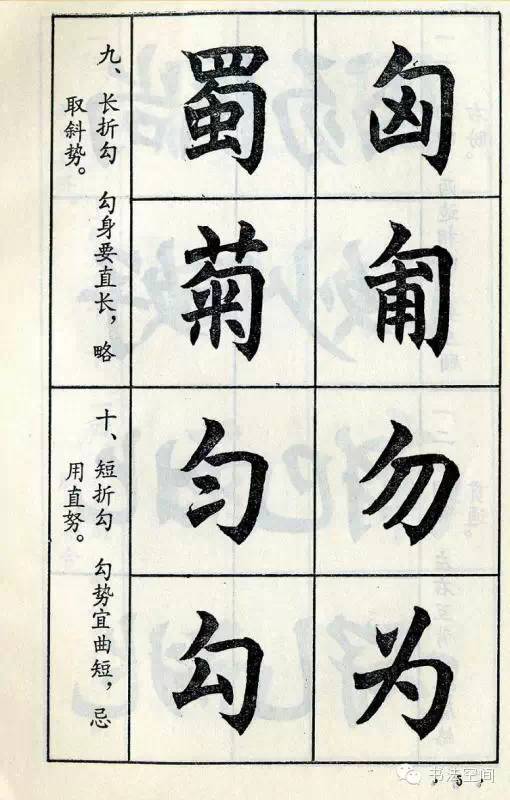 九、长折勾　勾身要直长，略
取斜势。
匈
匍
蜀
菊
十、短折勾　勾势宜曲短，忌
用直努。
勿
为
匀
勾
5
书法空间